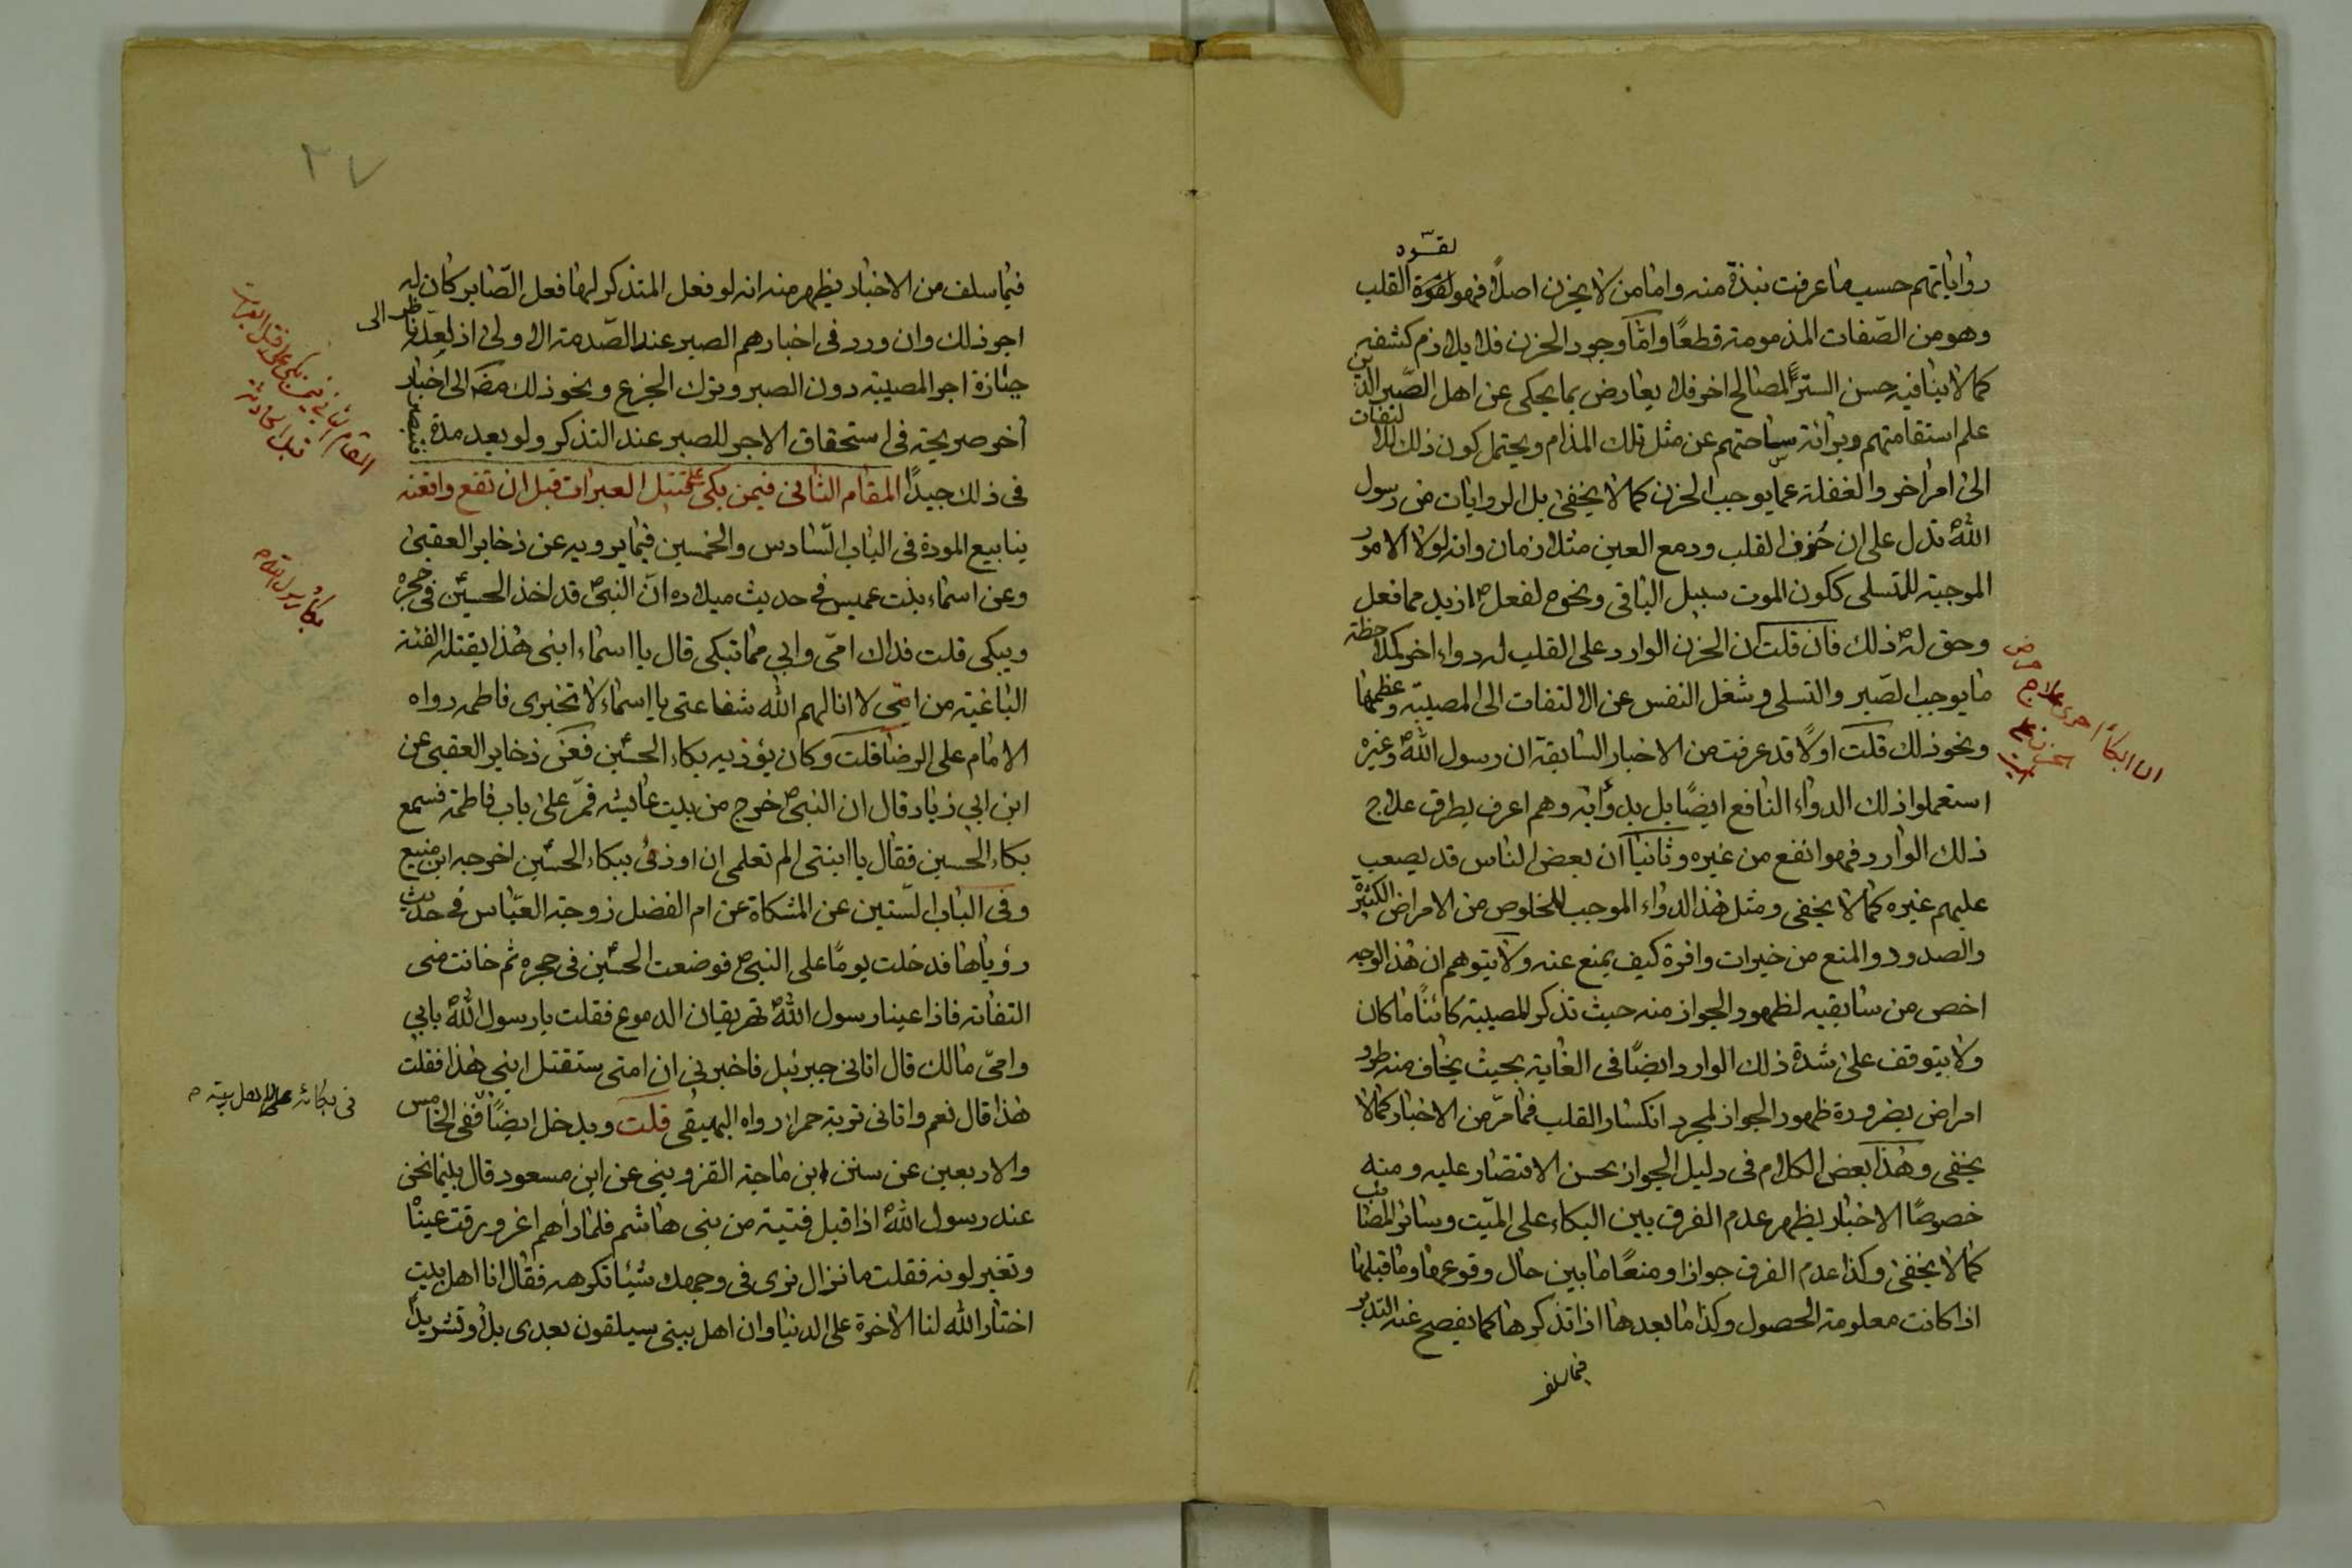 لقسوه
رواياتهم حسب ما عرفت نبذة منه واما من لا يحزن اصلاً فهو لقوة القلب
وهو من الصّفات المذمومة قطعًا وامّا وجود الحزن فلا يلازم كشفه
كما لا ينافيه حسن الستر لمصالح اخر فلا يعارض بما يحكى عن اهل الصّبر الذين
علم استقامتهم وبرائة ساحتهم عن مثل تلك المذام ويحتمل كون ذلك لالتفات
الى امر اخر والغفلة عمّا يوجب الحزن كما لا يخفى بل الروايات من رسول
اللهؐ تدل على ان حزن القلب ودمع العين متلازمان وانه لولا الامور
الموجبة للتسلى ككون الموت سبيل الباقى ونحوه لفعلؐ ازيد مما فعل
وحق لهؐ ذلك فان قلت ان الحزن الوارد على القلب له دواء اخر كملاحظة
ما يوجب الصّبر والتسلى وشغل النفس عن الالتفات الى المصيبة وعظمها
ونحو ذلك قلت اولاً قد عرفت من الاخبار السابقة ان رسول اللهؐ وغيره
استعملوا ذلك الدواء النافع ايضًا بل بدؤا به وهم اعرف بطرق علاج
ذلك الوارد فهو انفع من غيره وثانيًا ان بعض الناس قد يصعب
عليهم غيره كما لا يخفى ومثل هذا الدواء الموجب للخلوص من الامراض الكثيرة
والصدود والمنع من خيرات وافرة كيف يمنع عنه ولا يتوهم ان هذا الوجه
اخص من سابقيه لظهور الجواز منه حيث تذكر المصيبة كائنًا ما كان
ولا يتوقف على شدة ذلك الوارد ايضًا فى الغاية بحيث يخاف منه طرو
امراض بضرورة ظهور الجواز لمجرد انكسار القلب فما مرّ من الاخبار كما لا
يخفى وهذا بعض الكلام فى دليل الجواز يحسن الاقتصار عليه ومنه
خصوصًا الاخبار يظهر عدم الفرق بين البكاء على الميّت وسائر المصائب
كما لا يخفى وكذا عدم الفرق جوازا ومنعًا ما بين حال وقوعها وما قبلها
اذا كانت معلومة الحصول وكذا ما بعدها اذا تذكرها كما يفصح عنه التدبر
فيما سلف
ان البكاء احرى علاج
٢٧
فيما سلف من الاخبار يظهر منه انه لو فعل المتذكر لها فعل الصّابر كان له
اجر ذلك وان ورد فى اخبارهم الصبر عند الصّدمة الاولى اذ لعلّه ناظر الى
جنازة اجر المصيبة دون الصبر وترك الجزع ونحو ذلك مضا الى اخبار
أخر صريحة فى استحقاق الاجر للصبر عند التذكر ولو بعد مدة فتبصر
فى ذلك جيدًا المقام الثانى فيمن بكى على قتيل العبرات قبل ان تقع واقعته
ينابيع المودة فى الباب السّادس والخمسين فيما يرويه عن ذخاير العقبى
وعن اسماء بنت عميس فى حديث ميلاده انّ النبىّؐ قد اخذ الحسينؑ فى حجره
ويبكى قلت فداك امّى وابى مما تبكى قال يا اسماء ابنى هذا يقتله الفئة
الباغية من امتى لا انالهم الله شفاعتى يا اسماء لا تخبرى فاطمه رواه
الامام على الرضا قلت وكان يؤذيه بكاء الحسين فعن ذخاير العقبى عن
ابن ابى زياد قال ان النبىؐ خرج من بيت عايشه فمرّ على باب فاطمة فسمع
بكاء الحسين فقال يا ابنتى الم تعلمى ان اوذى ببكاء الحسين اخرجه ابن منيع
وفى الباب السّتين عن المشكاة عن ام الفضل زوجة العبّاس فى حديث
رؤياها فدخلت يومًا على النبىؐ فوضعت الحسين فى حجره ثم خانت منى
التفاته فاذا عينا رسول اللهؐ تهريقان الدموع فقلت يا رسول اللهؐ بابى
وامّى مالك قال اتانى جبرئيل فاخبرنى ان امتى ستقتل ابنى هذا فقلت
هذا قال نعم واتانى تربة حمراء رواه البيهقى قلت ويدخل ايضًا ففى الخامس
والاربعين عن سنن ابن ماجة القزوينى عن ابن مسعود قال بينما نحن
عند رسول اللهؐ اذ اقبل فتية من بنى هاشم فلما راهم اغرورقت عيناه
وتغير لونه فقلت ما نزال نرى فى وجهك شيئا تكرهه فقال انا اهل بيت
اختار الله لنا الاخرة على الدنيا وان اهل بيتى سيلقون بعدى بلاء وتشريدا
المقام الثانى فيمن بكى على قتيل العبرات
قبل الحادثة
بكاء رسول اللهؐ
فى بكائه على اهل بيتهؐ